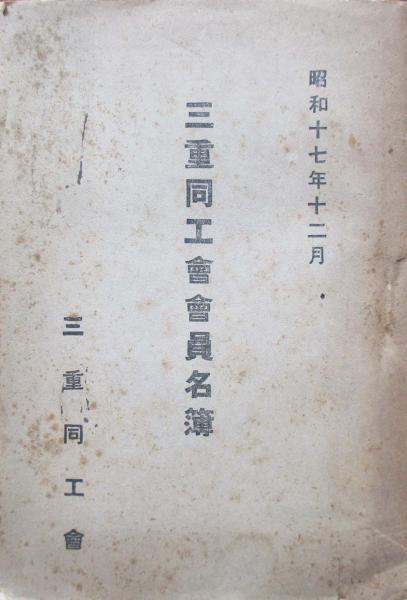 昭和十七年十二月
三重同工會會員名簿
三重同工會